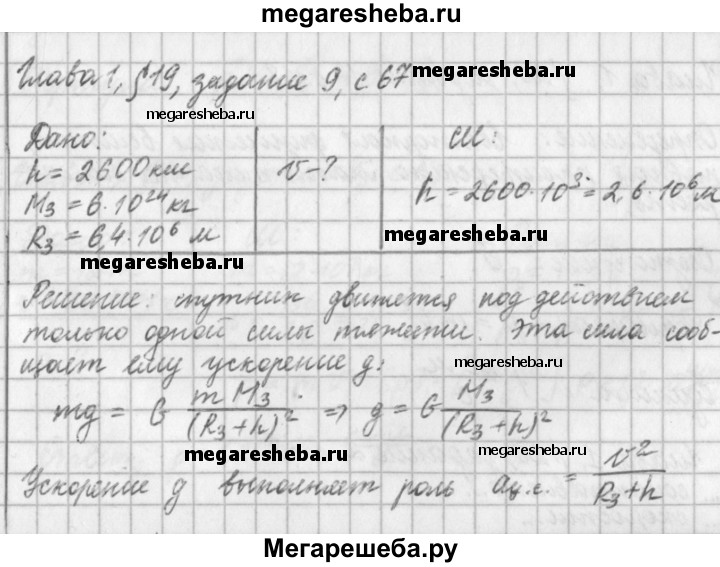 megaresheba.ru
Глава 1, §19, задание 9, с 67 megaresheba.ru
megaresheba.ru
Дано:
h = 2600 км
M₃ = 6·10²⁴ кг
R₃ = 6,4·10⁶ м
v-?
СИ:
h = 2600·10³ = 2,6·10⁶ м
megaresheba.ru
megaresheba.ru
Решение: спутник движется под действием
только одной силы тяжести. Эта сила сооб-
щает ему ускорение g: megaresheba.ru
mg = G mM₃/(R₃+h)² ⇒ g = G M₃/(R₃+h)²
megaresheba.ru
megaresheba.ru
Ускорение g выполняет роль aц.с. = v²/(R₃+h)
Мегарешеба.ру